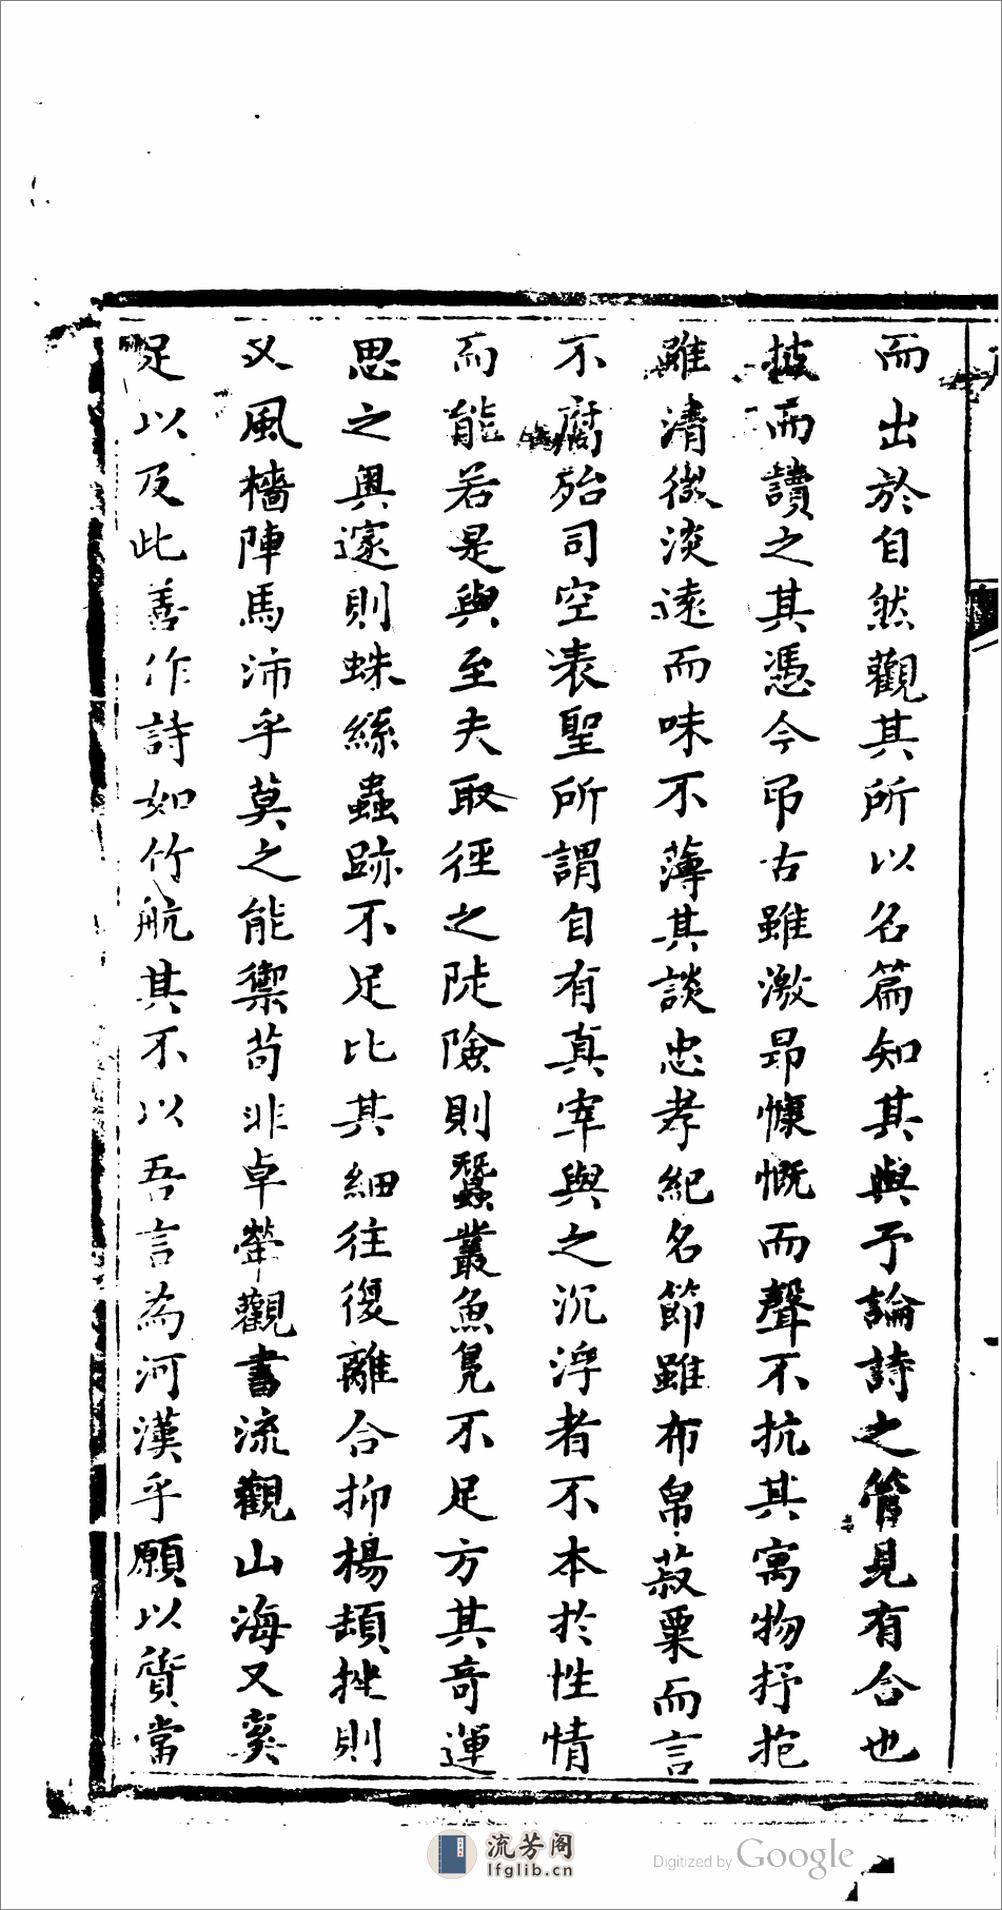 而出於自然觀其所以名篇知其與予論詩之管見有合也
披而讀之其憑今弔古雖激昻慷慨而聲不抗其寓物抒抱
雖清微淡遠而味不薄其談忠孝紀名節雖布帛菽粟而言
不腐殆司空表聖所謂自有真宰與之沉浮者不本於性情
而能若是與至夫取徑之陡險則蠶叢魚鳧不足方其奇運
思之奧邃則蛛絲蟲跡不足比其細往復離合抑楊頓挫則
又風檣陣馬沛乎莫之能禦苟非卓犖觀書流觀山海又奚
足以及此善作詩如竹航其不以吾言為河漢乎願以質當
流芳阁
lfglib.cn
Digitized by Google